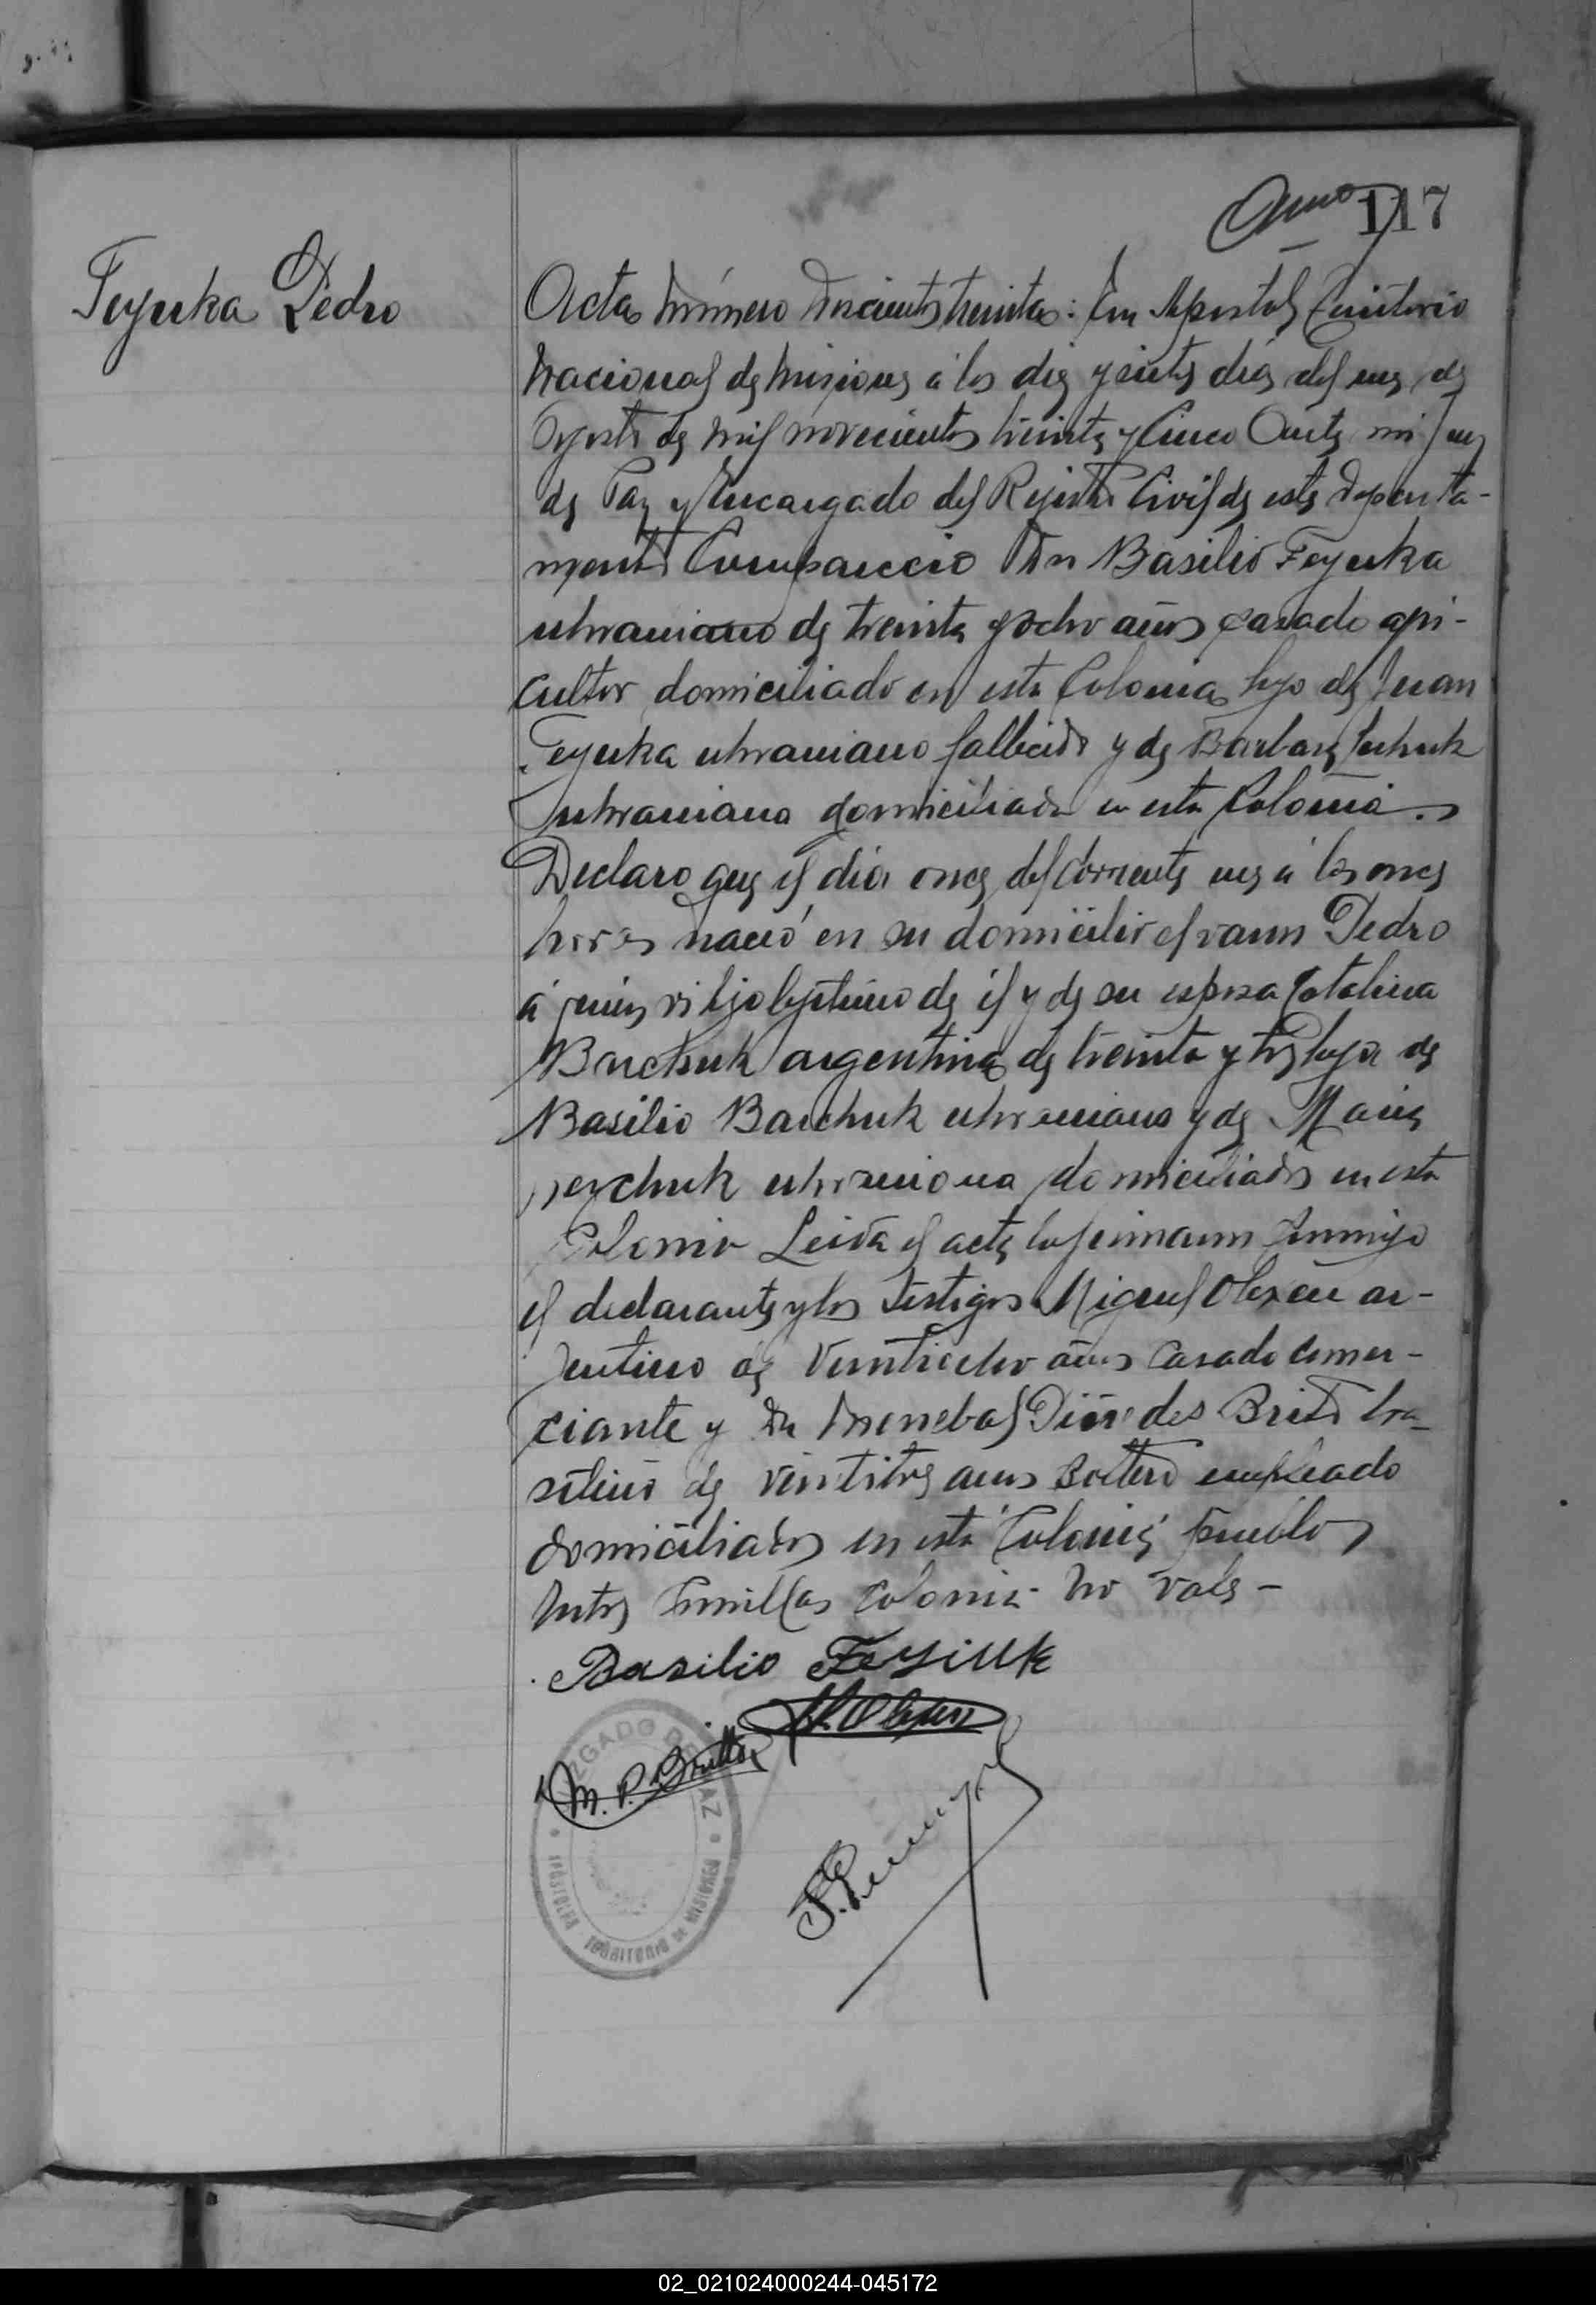 117
Feyuka Pedro
Acta número doscientos treinta: En Apostoles Territorio
Nacional de Misiones á los diez y siete dias del mes de
Agosto de mil novecientos treinta y Cinco Ante mi Juez
de Paz y Encargado del Registro Civil de este Departa-
mento Compareció Don Basilio Feyuka
ukraniano de treinta y ocho años casado agri-
cultor domiciliado en esta Colonia hijo de Juan
Feyuka ukraniano fallecido y de Barbara
ukraniana domiciliada en esta Colonia.
Declaro que el dia once del corriente mes á las once
horas nació en su domicilio el varon Pedro
á quien vi hijo legitimo de él y de su esposa Catalina
Barchuk argentina de treinta y tres hija de
Basilio Barchuk ukraniano y de Maria
ukraniana domiciliados en esta
Colonia Leida el acta la firmaron conmigo
el declarante y los testigos Miguel Olexen ar-
jentino de veintiocho años casado comer-
ciante y Don Diomedes Brito bra-
silero de veintitres años soltero empleado
domiciliados en esta Colonia pueblo
Entre Comillas Colonia no vale -
Basilio Feyiuk
M. P. Britto
JUZGADO DE PAZ
APOSTOLES
TERRITORIO DE MISIONES
02_021024000244-045172